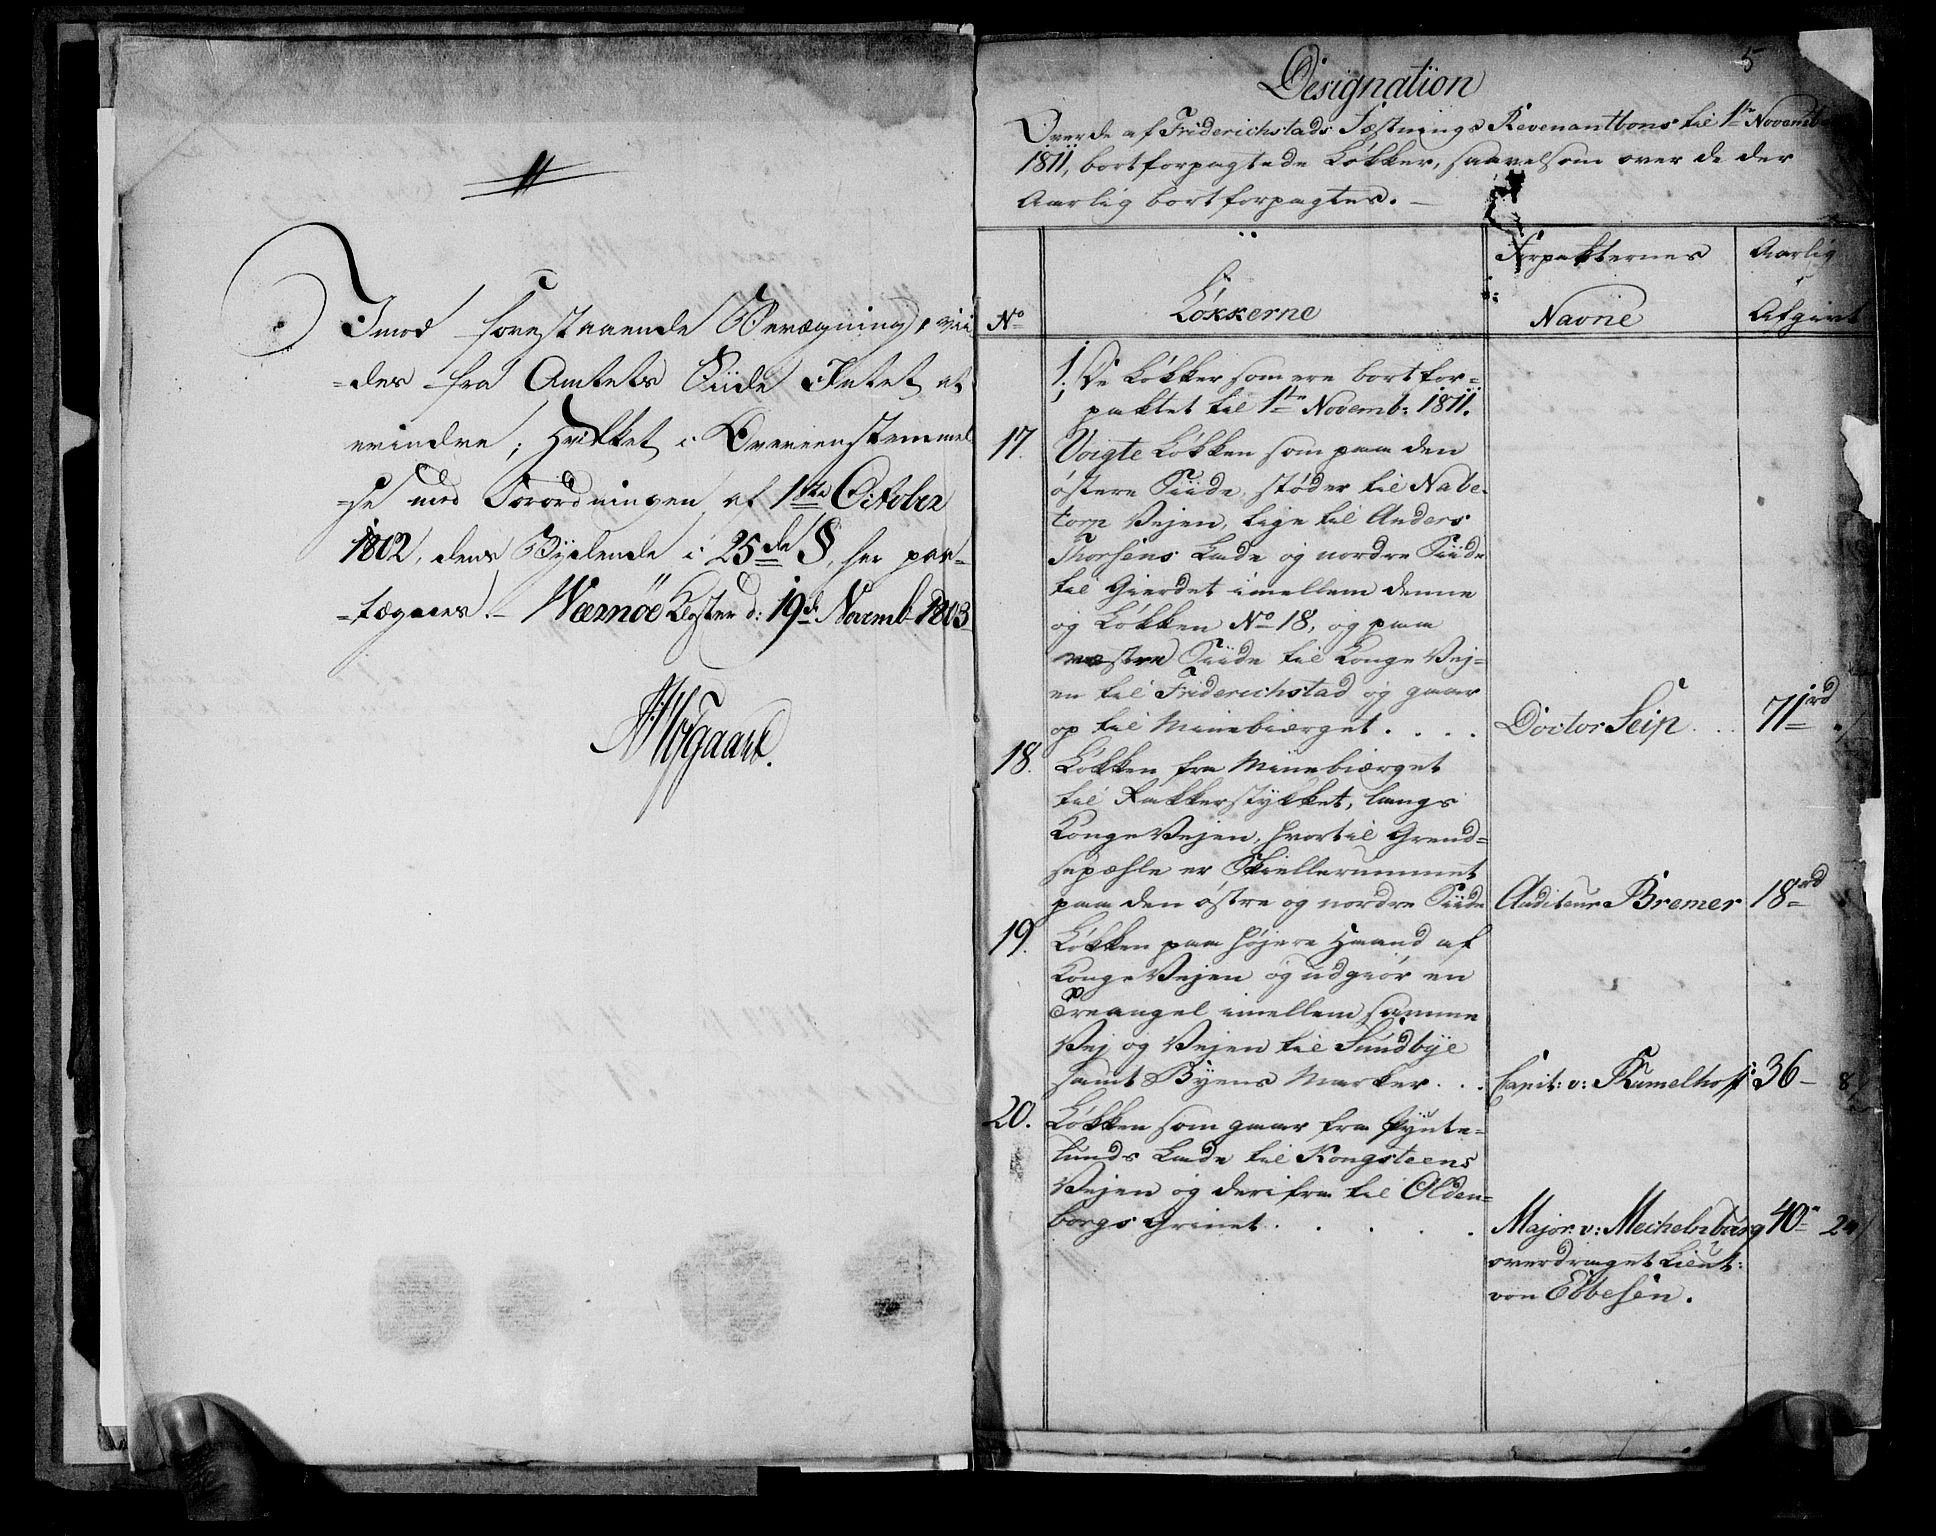 Imod forestaaende Beregning, vii
-des fra Amtets Siide Intet at
erindre; hvilket i Overeenstemmel
-se med Forordningen af 1ste October
1802, dens Bydende i 25de §, her paa-
-tegnes. – Wærnöe Kloster d: 19de Novemb: 1803
5
Designation
Over de af Friderichstads Fæstnings Revenantbons til 1te Novemb
1811, bortforpagtede Løkker, saavelsom over de der
Aarlig bortforpagtes. –
No
Løkkerne
Forpakternes
Navne
Aarlig
Afgivt
1. De Løkker som ere bortfor-
paktet til 1te Novemb: 1811.
17. Voigte Løkken som paa den
østere Siide, støder til Nabe-
torp Vejen, lige til Anders
Thorsens Lade og nordre Siide
til Gierdet imellem denne
og Løkken No 18, og paa
væstre Siide til Konge Vej-
en til Friderichstad og gaar
op til Minebierget . . . . Doctor Seip . . . 71 rd
18. Løkken fra Minebierget
til Rakkerstykket, langs
Konge Vejen, hvortil Grend-
sepæhle er Skiellerummet
paa den østre og nordre Siide Auditeur Bremer 18 rd
19. Løkken paa højere Haand af
Konge Vejen og udgiør en
Treangel imellem samme
Vej og Vejen til Sundbye
samt Byens Marker . . . Capit: v: Rumelhoff 36 – 8
20. Løkken som gaar fra Pynte-
lunds Lade til Kongsteens
Vejen og derifra til Olden-
borgs Grinet . . . . . Major v: Mechelnburg 40 – 24
overdraget Lieut:
von Ebbesen.